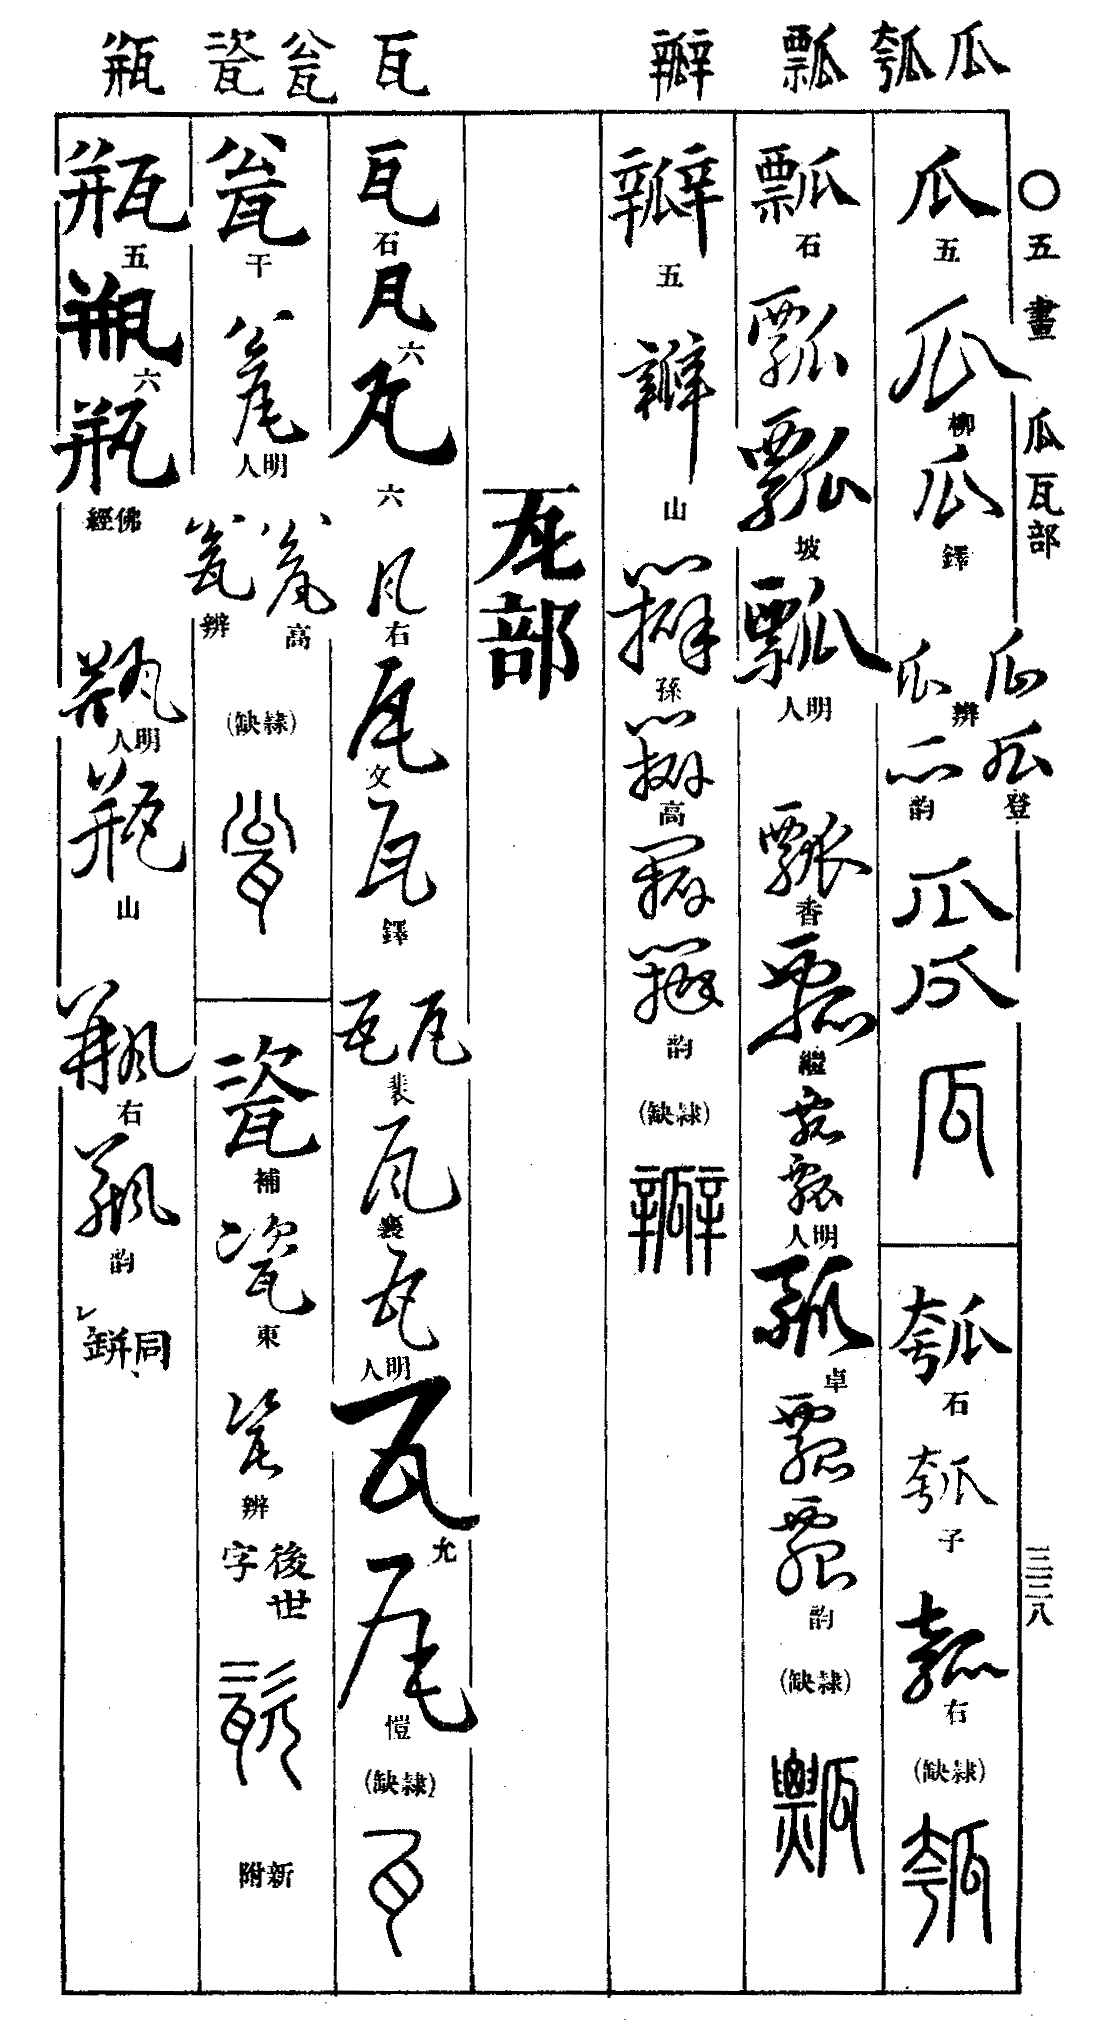 瓜 瓠 瓢 瓣 瓦 瓮 瓷 瓶
○五畫 瓜瓦部 三三八
瓜 五
瓜 柳
瓜 鐸
瓜 瓜 辨
瓜 登
瓜 韵
瓜
瓜
瓜
瓠 石
瓠 子
瓠 右
(隸缺)
瓠
瓢 石
瓢
瓢 坡
瓢 明人
瓢 香
瓢 繼
瓢
瓢 明人
瓢 卓
瓢
瓢 韵
(隸缺)
瓢
瓣 五
瓣 山
瓣 孫
瓣 高
瓣
瓣 韵
(隸缺)
瓣
瓦部
瓦 石
瓦 六
瓦 六
瓦 右
瓦 文
瓦 鐸
瓦 瓦 裴
瓦 襄
瓦 明人
瓦 允
瓦 愷
(隸缺)
瓦
瓮 干
瓮 明人
瓮 高
瓮 辨
(隸缺)
瓮
瓷 補
瓷 東
瓷 辨
後世字
瓷
新附
瓶 五
瓶 六
瓶 佛經
瓶 明人
瓶 山
瓶 右
瓶 韵
同缾